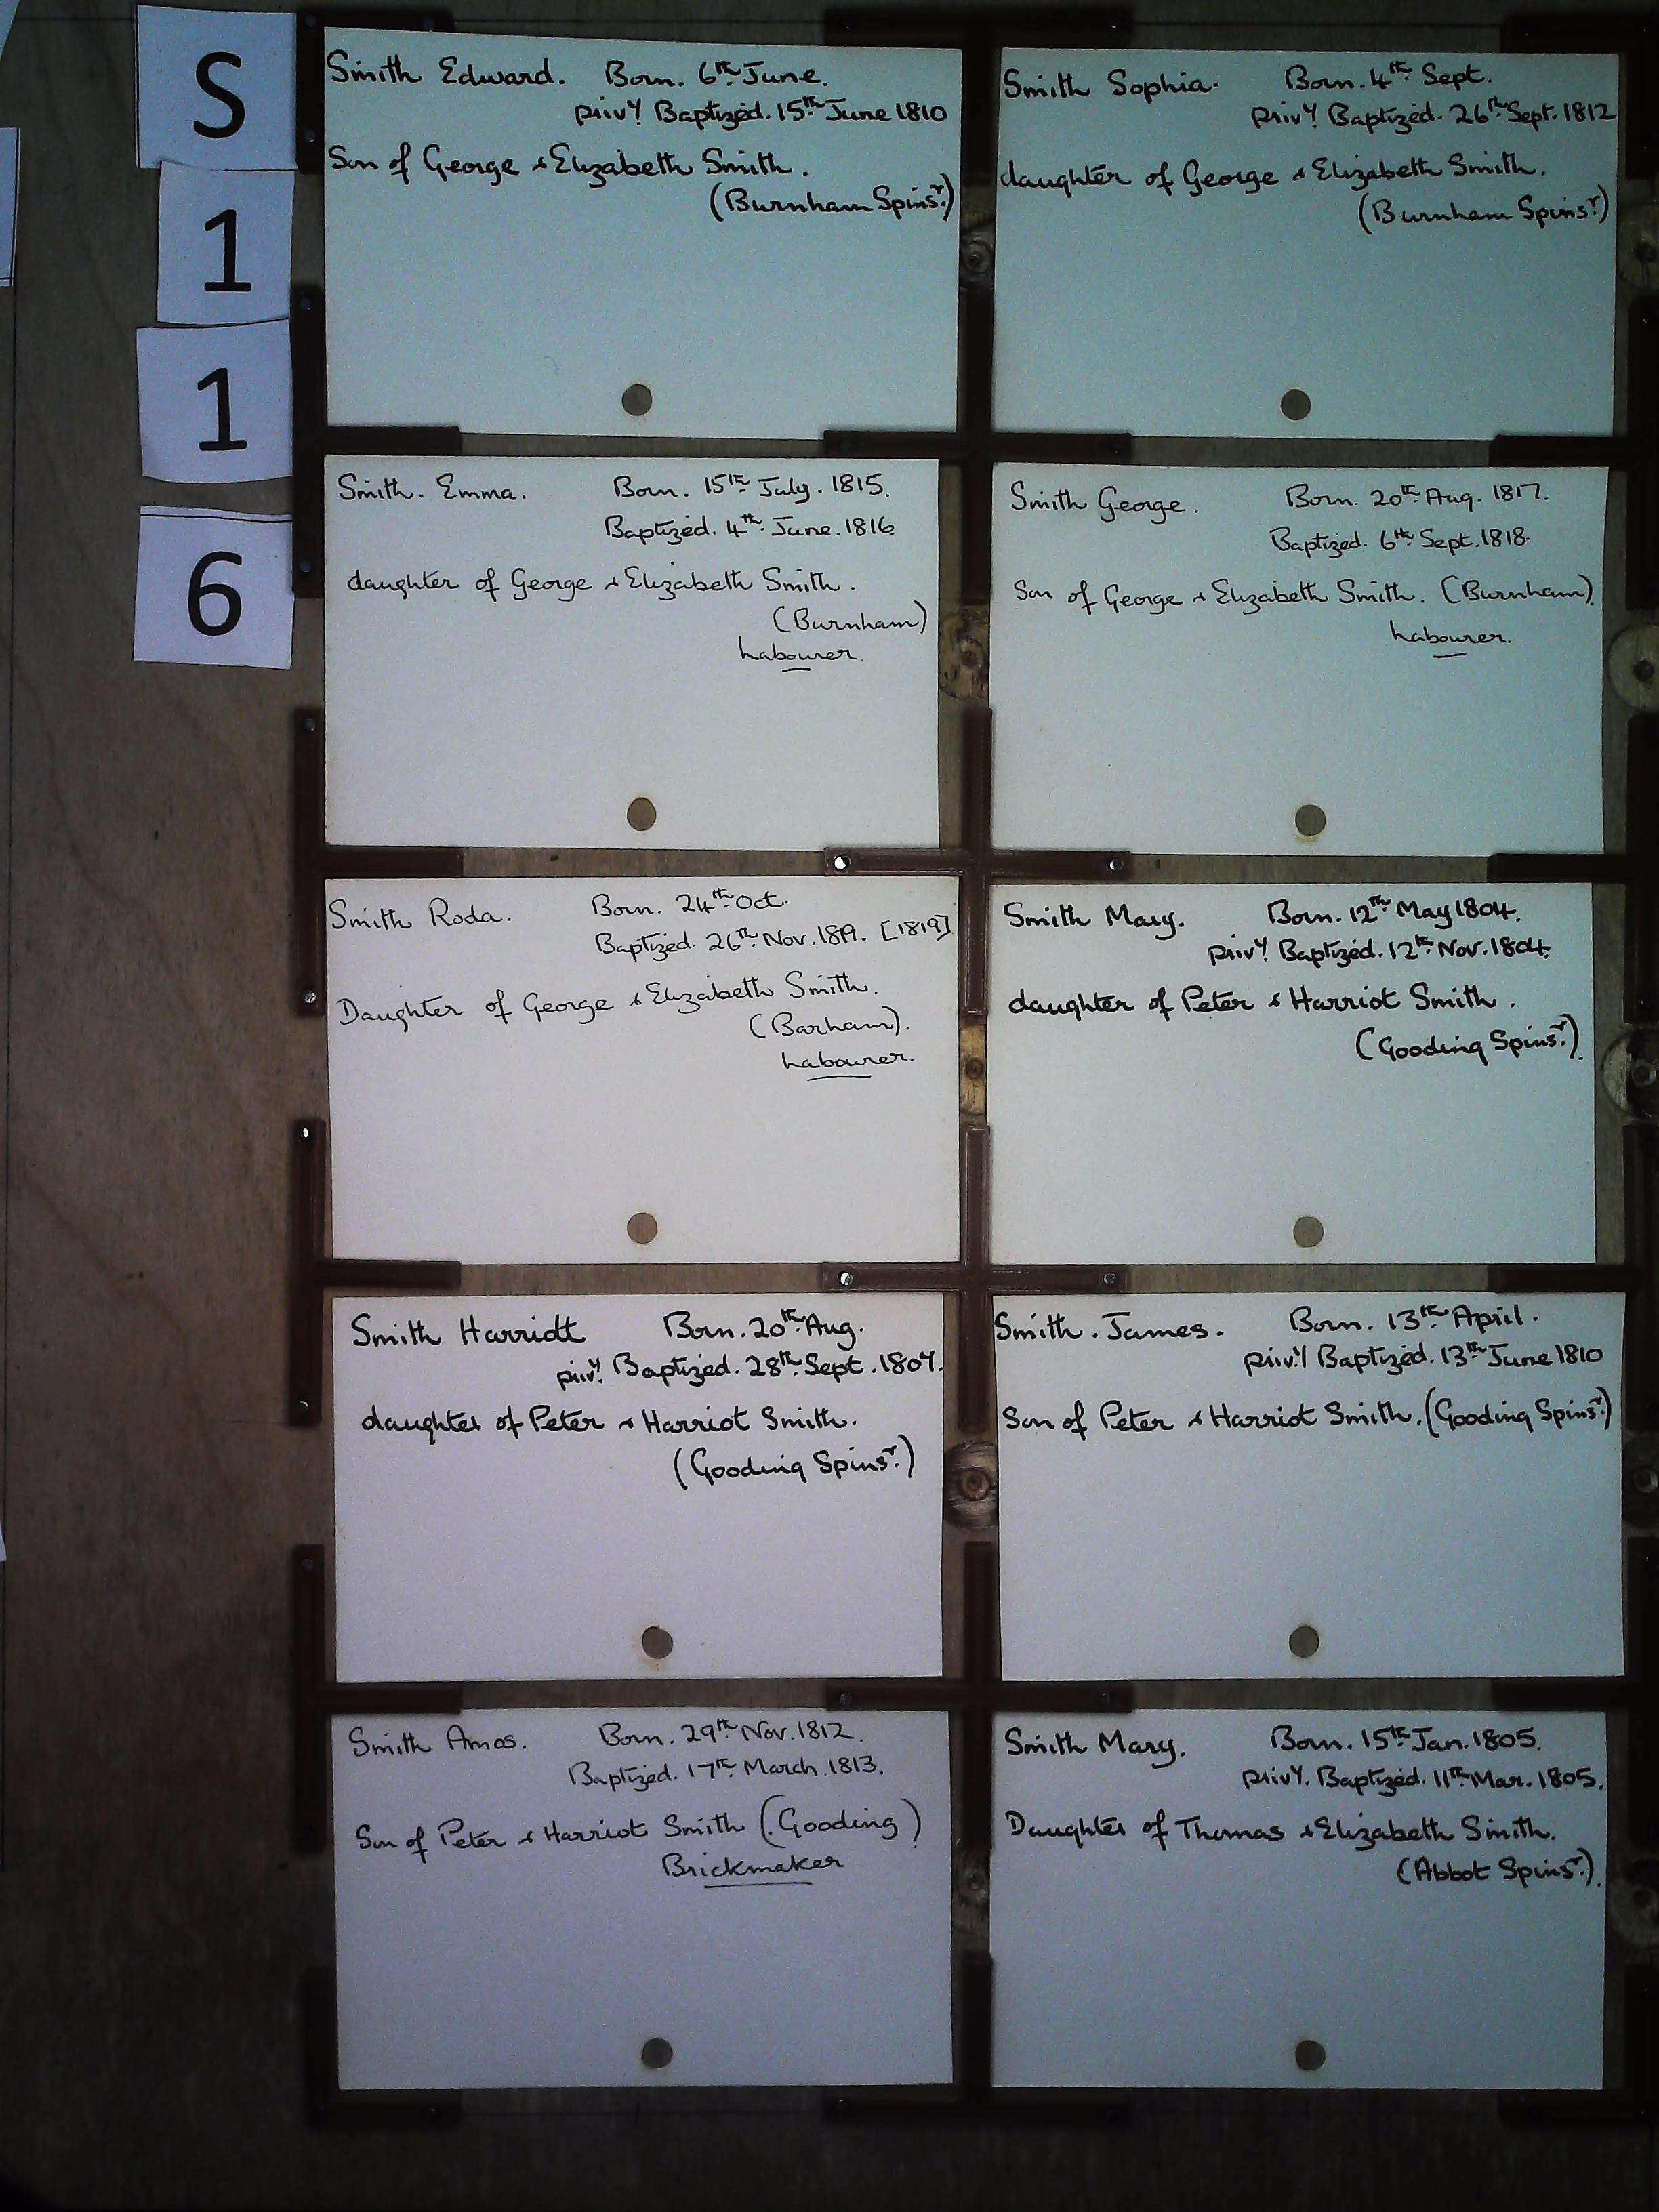 S
1
1
6
Smith Edward. Born. 6th June.
privy. Baptized. 15th June 1810
Son of George & Elizabeth Smith.
(Burnham Spinsr.)
Smith Sophia. Born. 4th Sept.
privy. Baptized. 26th Sept. 1812
daughter of George & Elizabeth Smith.
(Burnham Spinsr.)
Smith. Emma. Born. 15th July. 1815.
Baptized. 4th June. 1816
daughter of George & Elizabeth Smith.
(Burnham)
Labourer.
Smith George. Born. 20th Aug. 1817.
Baptized. 6th Sept. 1818.
Son of George & Elizabeth Smith. (Burnham)
Labourer.
Smith Roda. Born. 24th Oct.
Baptized. 26th Nov. [1819]
Daughter of George & Elizabeth Smith.
(Barham).
Labourer.
Smith Mary. Born. 12th May 1804.
privy. Baptized. 12th Nov. 1804.
daughter of Peter & Harriot Smith.
(Gooding Spinsr.).
Smith Born. 20th Aug.
privy. Baptized. 28th Sept. 1807.
daughter of Peter & Harriot Smith.
(Gooding Spinsr.)
Smith. James. Born. 13th April.
privy. Baptized. 13th June 1810
Son of Peter & Harriot Smith. (Gooding Spinsr.)
Smith Amos. Born. 29th Nov. 1812.
Baptized. 17th March. 1813.
Son of Peter & Harriot Smith (Gooding)
Brickmaker
Smith Mary. Born. 15th Jan. 1805.
privy. Baptized. 11th Mar. 1805.
Daughter of Thomas & Elizabeth Smith.
(Abbot Spinsr.).